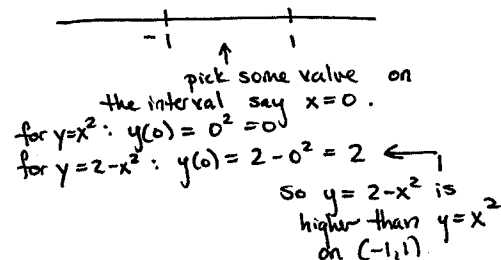 -1 1
pick some value on
the interval say x=0.
for y=x²: y(0) = 0² = 0
for y=2-x²: y(0) = 2-0² = 2
So y=2-x² is
higher than y=x²
on (-1,1)